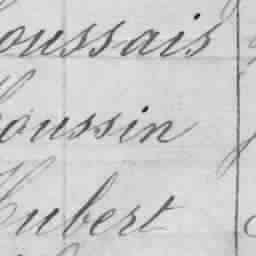 oussais
oussin
Hubert